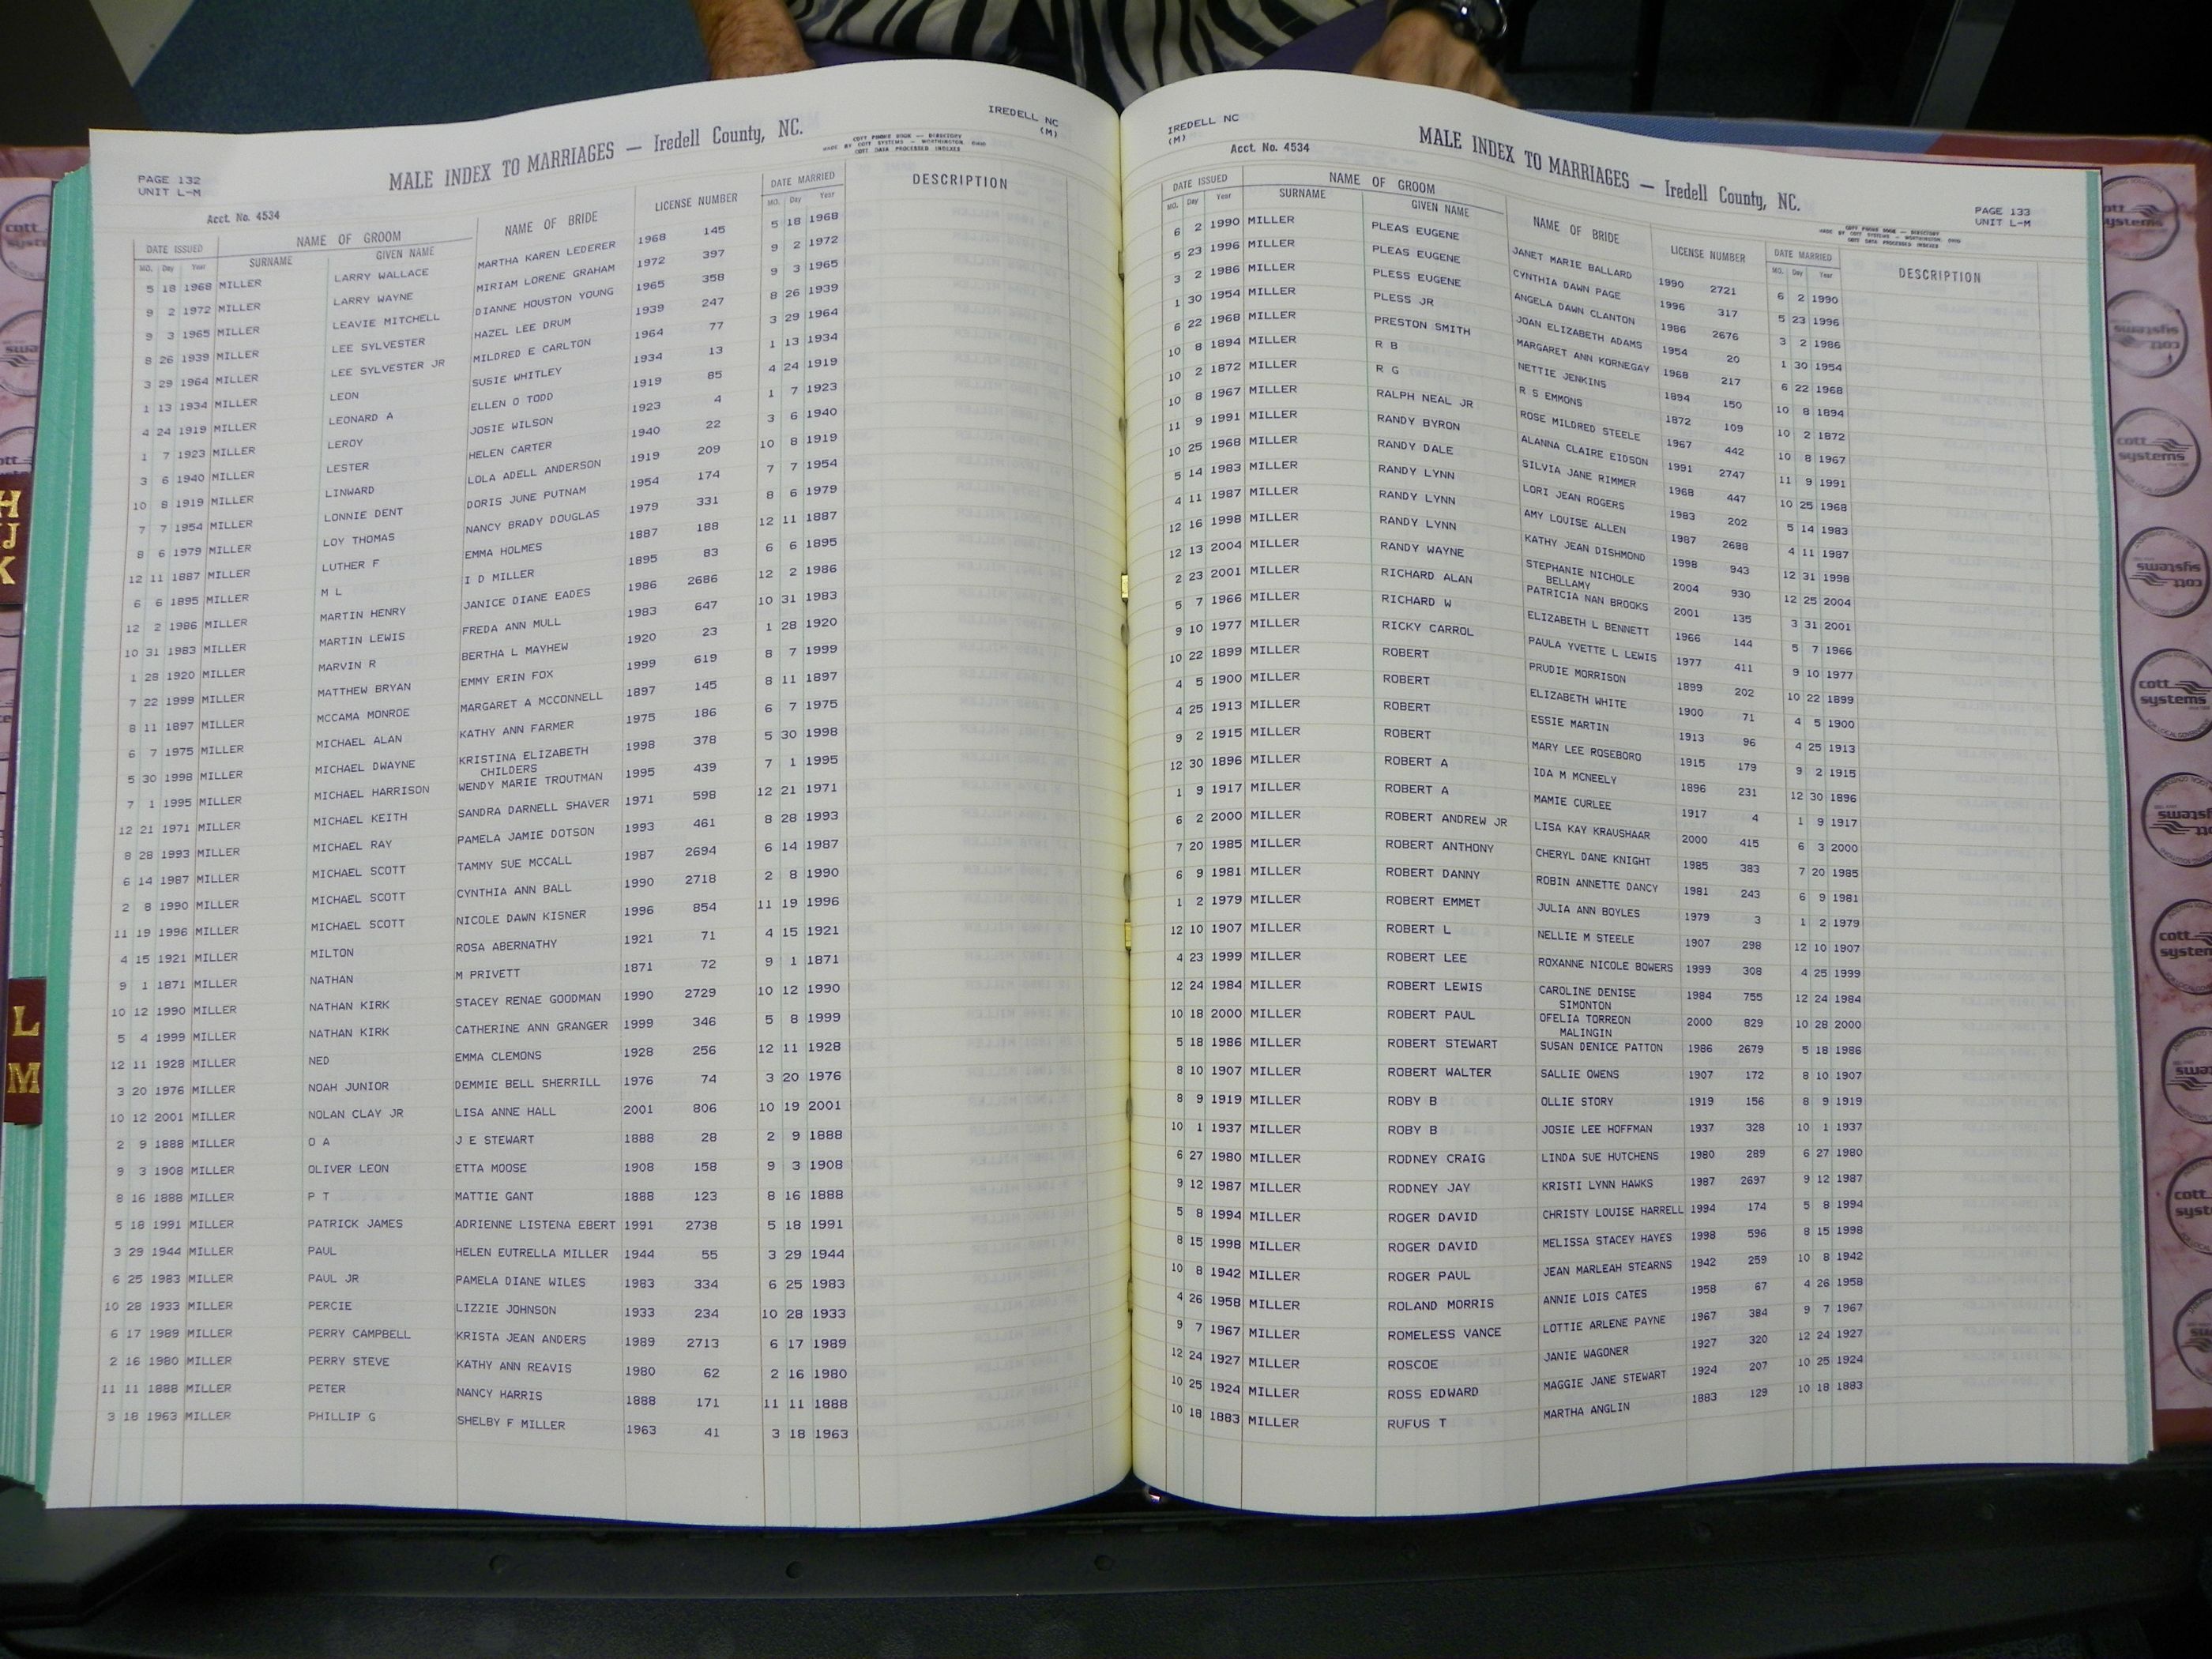 IREDELL NC
(M)
MALE INDEX TO MARRIAGES — Iredell County, NC.
COTT PHONEX BOOK — DIRECTORY
MADE BY COTT SYSTEMS — WORTHINGTON, OHIO
COTT DATA PROCESSED INDEXES
PAGE 132
UNIT L-M
Acct. No. 4534
DATE ISSUED NAME OF GROOM NAME OF BRIDE LICENSE NUMBER DATE MARRIED DESCRIPTION
MO. Day Year SURNAME GIVEN NAME MO. Day Year
5 18 1968 MILLER LARRY WALLACE MARTHA KAREN LEDERER 1968 145 5 18 1968
9 2 1972 MILLER LARRY WAYNE MIRIAM LORENE GRAHAM 1972 397 9 2 1972
9 3 1965 MILLER LEAVIE MITCHELL DIANNE HOUSTON YOUNG 1965 358 9 3 1965
8 26 1939 MILLER LEE SYLVESTER HAZEL LEE DRUM 1939 247 8 26 1939
3 29 1964 MILLER LEE SYLVESTER JR MILDRED E CARLTON 1964 77 3 29 1964
1 13 1934 MILLER LEON SUSIE WHITLEY 1934 13 1 13 1934
4 24 1919 MILLER LEONARD A ELLEN O TODD 1919 85 4 24 1919
1 7 1923 MILLER LEROY JOSIE WILSON 1923 4 1 7 1923
3 6 1940 MILLER LESTER HELEN CARTER 1940 22 3 6 1940
10 8 1919 MILLER LINWARD LOLA ADELL ANDERSON 1919 209 10 8 1919
7 7 1954 MILLER LONNIE DENT DORIS JUNE PUTNAM 1954 174 7 7 1954
8 6 1979 MILLER LOY THOMAS NANCY BRADY DOUGLAS 1979 331 8 6 1979
12 11 1887 MILLER LUTHER F EMMA HOLMES 1887 188 12 11 1887
6 6 1895 MILLER M L I D MILLER 1895 83 6 6 1895
12 2 1986 MILLER MARTIN HENRY JANICE DIANE EADES 1986 2686 12 2 1986
10 31 1983 MILLER MARTIN LEWIS FREDA ANN MULL 1983 647 10 31 1983
1 28 1920 MILLER MARVIN R BERTHA L MAYHEW 1920 23 1 28 1920
7 22 1999 MILLER MATTHEW BRYAN EMMY ERIN FOX 1999 619 8 7 1999
8 11 1897 MILLER MCCAMA MONROE MARGARET A MCCONNELL 1897 145 8 11 1897
6 7 1975 MILLER MICHAEL ALAN KATHY ANN FARMER 1975 186 6 7 1975
5 30 1998 MILLER MICHAEL DWAYNE KRISTINA ELIZABETH 1998 378 5 30 1998
CHILDERS
7 1 1995 MILLER MICHAEL HARRISON WENDY MARIE TROUTMAN 1995 439 7 1 1995
12 21 1971 MILLER MICHAEL KEITH SANDRA DARNELL SHAVER 1971 598 12 21 1971
8 28 1993 MILLER MICHAEL RAY PAMELA JAMIE DOTSON 1993 461 8 28 1993
6 14 1987 MILLER MICHAEL SCOTT TAMMY SUE MCCALL 1987 2694 6 14 1987
2 8 1990 MILLER MICHAEL SCOTT CYNTHIA ANN BALL 1990 2718 2 8 1990
11 19 1996 MILLER MICHAEL SCOTT NICOLE DAWN KISNER 1996 854 11 19 1996
4 15 1921 MILLER MILTON ROSA ABERNATHY 1921 71 4 15 1921
9 1 1871 MILLER NATHAN M PRIVETT 1871 72 9 1 1871
10 12 1990 MILLER NATHAN KIRK STACEY RENAE GOODMAN 1990 2729 10 12 1990
5 4 1999 MILLER NATHAN KIRK CATHERINE ANN GRANGER 1999 346 5 8 1999
12 11 1928 MILLER NED EMMA CLEMONS 1928 256 12 11 1928
3 20 1976 MILLER NOAH JUNIOR DEMMIE BELL SHERRILL 1976 74 3 20 1976
10 12 2001 MILLER NOLAN CLAY JR LISA ANNE HALL 2001 806 10 19 2001
2 9 1888 MILLER O A J E STEWART 1888 28 2 9 1888
9 3 1908 MILLER OLIVER LEON ETTA MOOSE 1908 158 9 3 1908
8 16 1888 MILLER P T MATTIE GANT 1888 123 8 16 1888
5 18 1991 MILLER PATRICK JAMES ADRIENNE LISTENA EBERT 1991 2738 5 18 1991
3 29 1944 MILLER PAUL HELEN EUTRELLA MILLER 1944 55 3 29 1944
6 25 1983 MILLER PAUL JR PAMELA DIANE WILES 1983 334 6 25 1983
10 28 1933 MILLER PERCIE LIZZIE JOHNSON 1933 234 10 28 1933
6 17 1989 MILLER PERRY CAMPBELL KRISTA JEAN ANDERS 1989 2713 6 17 1989
2 16 1980 MILLER PERRY STEVE KATHY ANN REAVIS 1980 62 2 16 1980
11 11 1888 MILLER PETER NANCY HARRIS 1888 171 11 11 1888
3 18 1963 MILLER PHILLIP G SHELBY F MILLER 1963 41 3 18 1963
IREDELL NC
(M)
Acct. No. 4534
MALE INDEX TO MARRIAGES — Iredell County, NC.
PAGE 133
UNIT L-M
COTT PHONEX BOOK — DIRECTORY
MADE BY COTT SYSTEMS — WORTHINGTON, OHIO
COTT DATA PROCESSED INDEXES
DATE ISSUED NAME OF GROOM NAME OF BRIDE LICENSE NUMBER DATE MARRIED DESCRIPTION
MO. Day Year SURNAME GIVEN NAME MO. Day Year
6 2 1990 MILLER PLEAS EUGENE JANET MARIE BALLARD 1990 2721 6 2 1990
5 23 1996 MILLER PLEAS EUGENE CYNTHIA DAWN PAGE 1996 317 5 23 1996
3 2 1986 MILLER PLESS EUGENE ANGELA DAWN CLANTON 1986 2676 3 2 1986
1 30 1954 MILLER PLESS JR JOAN ELIZABETH ADAMS 1954 20 1 30 1954
6 22 1968 MILLER PRESTON SMITH MARGARET ANN KORNEGAY 1968 217 6 22 1968
10 8 1894 MILLER R B NETTIE JENKINS 1894 150 10 8 1894
10 2 1872 MILLER R G R S EMMONS 1872 109 10 2 1872
10 8 1967 MILLER RALPH NEAL JR ROSE MILDRED STEELE 1967 442 10 8 1967
11 9 1991 MILLER RANDY BYRON ALANNA CLAIRE EIDSON 1991 2747 11 9 1991
10 25 1968 MILLER RANDY DALE SILVIA JANE RIMMER 1968 447 10 25 1968
5 14 1983 MILLER RANDY LYNN LORI JEAN ROGERS 1983 202 5 14 1983
4 11 1987 MILLER RANDY LYNN AMY LOUISE ALLEN 1987 2688 4 11 1987
12 16 1998 MILLER RANDY LYNN KATHY JEAN DISHMOND 1998 943 12 31 1998
12 13 2004 MILLER RANDY WAYNE STEPHANIE NICHOLE 2004 930 12 25 2004
BELLAMY
2 23 2001 MILLER RICHARD ALAN PATRICIA NAN BROOKS 2001 135 3 31 2001
5 7 1966 MILLER RICHARD W ELIZABETH L BENNETT 1966 144 5 7 1966
9 10 1977 MILLER RICKY CARROL PAULA YVETTE L LEWIS 1977 411 9 10 1977
10 22 1899 MILLER ROBERT PRUDIE MORRISON 1899 202 10 22 1899
4 5 1900 MILLER ROBERT ELIZABETH WHITE 1900 71 4 5 1900
4 25 1913 MILLER ROBERT ESSIE MARTIN 1913 96 4 25 1913
9 2 1915 MILLER ROBERT MARY LEE ROSEBORO 1915 179 9 2 1915
12 30 1896 MILLER ROBERT A IDA M MCNEELY 1896 231 12 30 1896
1 9 1917 MILLER ROBERT A MAMIE CURLEE 1917 4 1 9 1917
6 2 2000 MILLER ROBERT ANDREW JR LISA KAY KRAUSHAAR 2000 415 6 3 2000
7 20 1985 MILLER ROBERT ANTHONY CHERYL DANE KNIGHT 1985 383 7 20 1985
6 9 1981 MILLER ROBERT DANNY ROBIN ANNETTE DANCY 1981 243 6 9 1981
1 2 1979 MILLER ROBERT EMMET JULIA ANN BOYLES 1979 3 1 2 1979
12 10 1907 MILLER ROBERT L NELLIE M STEELE 1907 298 12 10 1907
4 23 1999 MILLER ROBERT LEE ROXANNE NICOLE BOWERS 1999 308 4 25 1999
12 24 1984 MILLER ROBERT LEWIS CAROLINE DENISE 1984 755 12 24 1984
SIMONTON
10 18 2000 MILLER ROBERT PAUL OFELIA TORREON 2000 829 10 28 2000
MALINGIN
5 18 1986 MILLER ROBERT STEWART SUSAN DENICE PATTON 1986 2679 5 18 1986
8 10 1907 MILLER ROBERT WALTER SALLIE OWENS 1907 172 8 10 1907
8 9 1919 MILLER ROBY B OLLIE STORY 1919 156 8 9 1919
10 1 1937 MILLER ROBY B JOSIE LEE HOFFMAN 1937 328 10 1 1937
6 27 1980 MILLER RODNEY CRAIG LINDA SUE HUTCHENS 1980 289 6 27 1980
9 12 1987 MILLER RODNEY JAY KRISTI LYNN HAWKS 1987 2697 9 12 1987
5 8 1994 MILLER ROGER DAVID CHRISTY LOUISE HARRELL 1994 174 5 8 1994
8 15 1998 MILLER ROGER DAVID MELISSA STACEY HAYES 1998 596 8 15 1998
10 8 1942 MILLER ROGER PAUL JEAN MARLEAH STEARNS 1942 259 10 8 1942
4 26 1958 MILLER ROLAND MORRIS ANNIE LOIS CATES 1958 67 4 26 1958
9 7 1967 MILLER ROMELESS VANCE LOTTIE ARLENE PAYNE 1967 384 9 7 1967
12 24 1927 MILLER ROSCOE JANIE WAGONER 1927 320 12 24 1927
10 25 1924 MILLER ROSS EDWARD MAGGIE JANE STEWART 1924 207 10 25 1924
10 18 1883 MILLER RUFUS T MARTHA ANGLIN 1883 129 10 18 1883
H
J
K
L
M
cott
systems
cott
systems
cott
systems